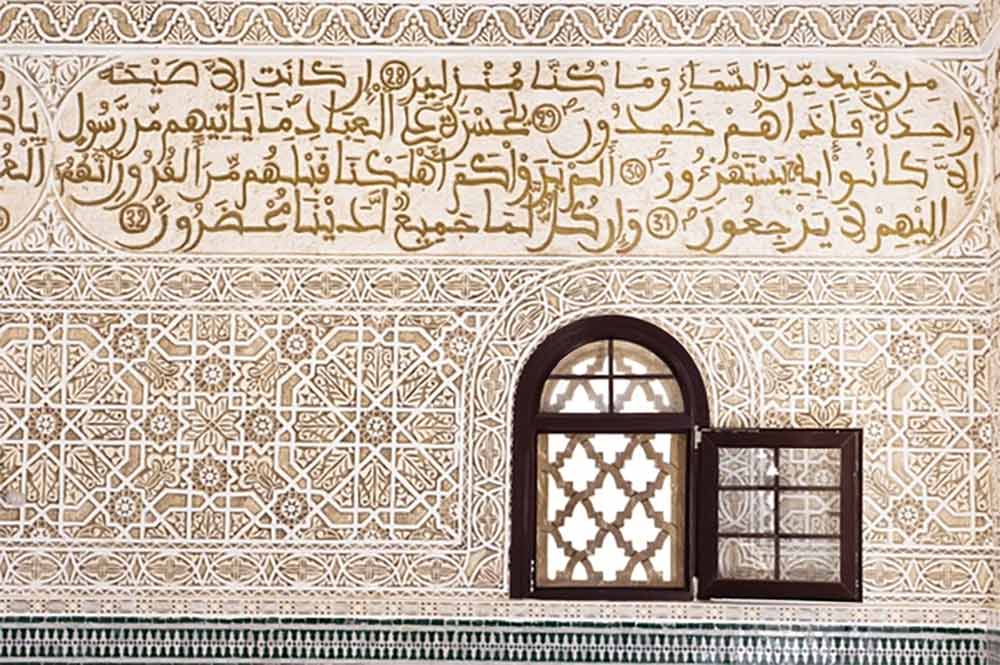 من جند من السماء وما كنا منزلين 28 إن كانت إلا صيحة
واحدة فإذا هم خٰمدون 29 يٰحسرة على العباد ما ياتيهم من رسول
إلا كانوا به يستهزءون 30 ألم يروا كم أهلكنا قبلهم من القرون أنهم
إليهم لا يرجعون 31 وإن كل لما جميع لدينا محضرون 32